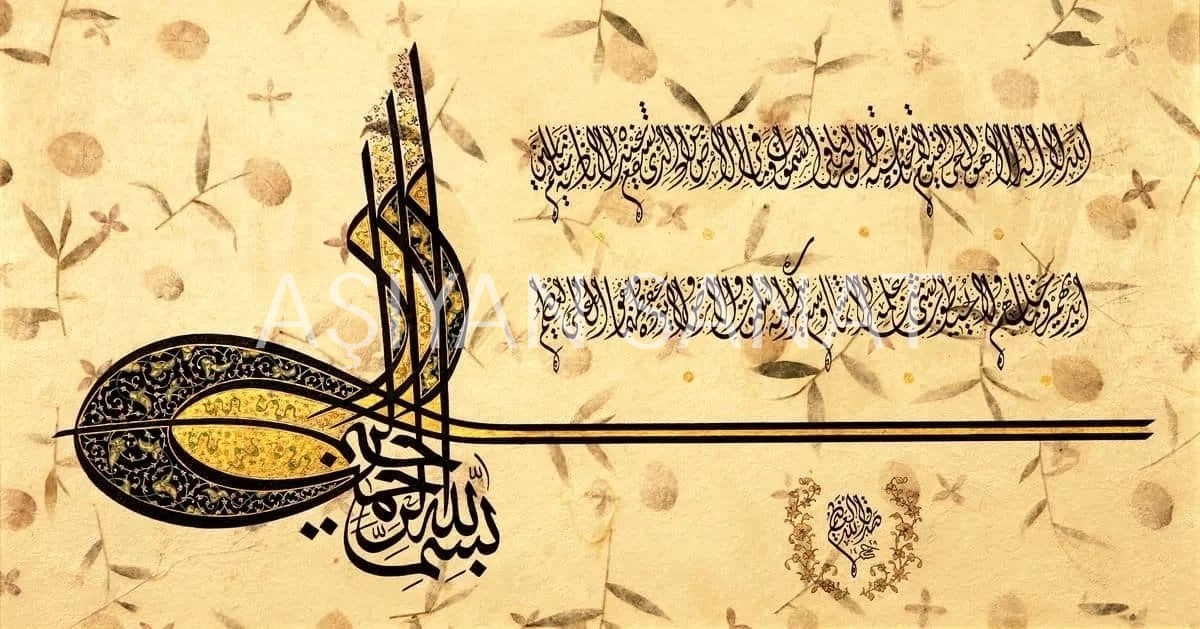 الله لا اله الا هو الحي القيوم لا تأخذه سنة ولا نوم له ما في السموات وما في الارض من ذا الذي يشفع عنده الا باذنه يعلم ما بين
ايديهم وما خلفهم ولا يحيطون بشيء من علمه الا بما شاء وسع كرسيه السموات والارض ولا يؤده حفظهما وهو العلي العظيم
AŞİYAN SANAT
بسم الله الرحمن الرحيم
صدق الله العظيم